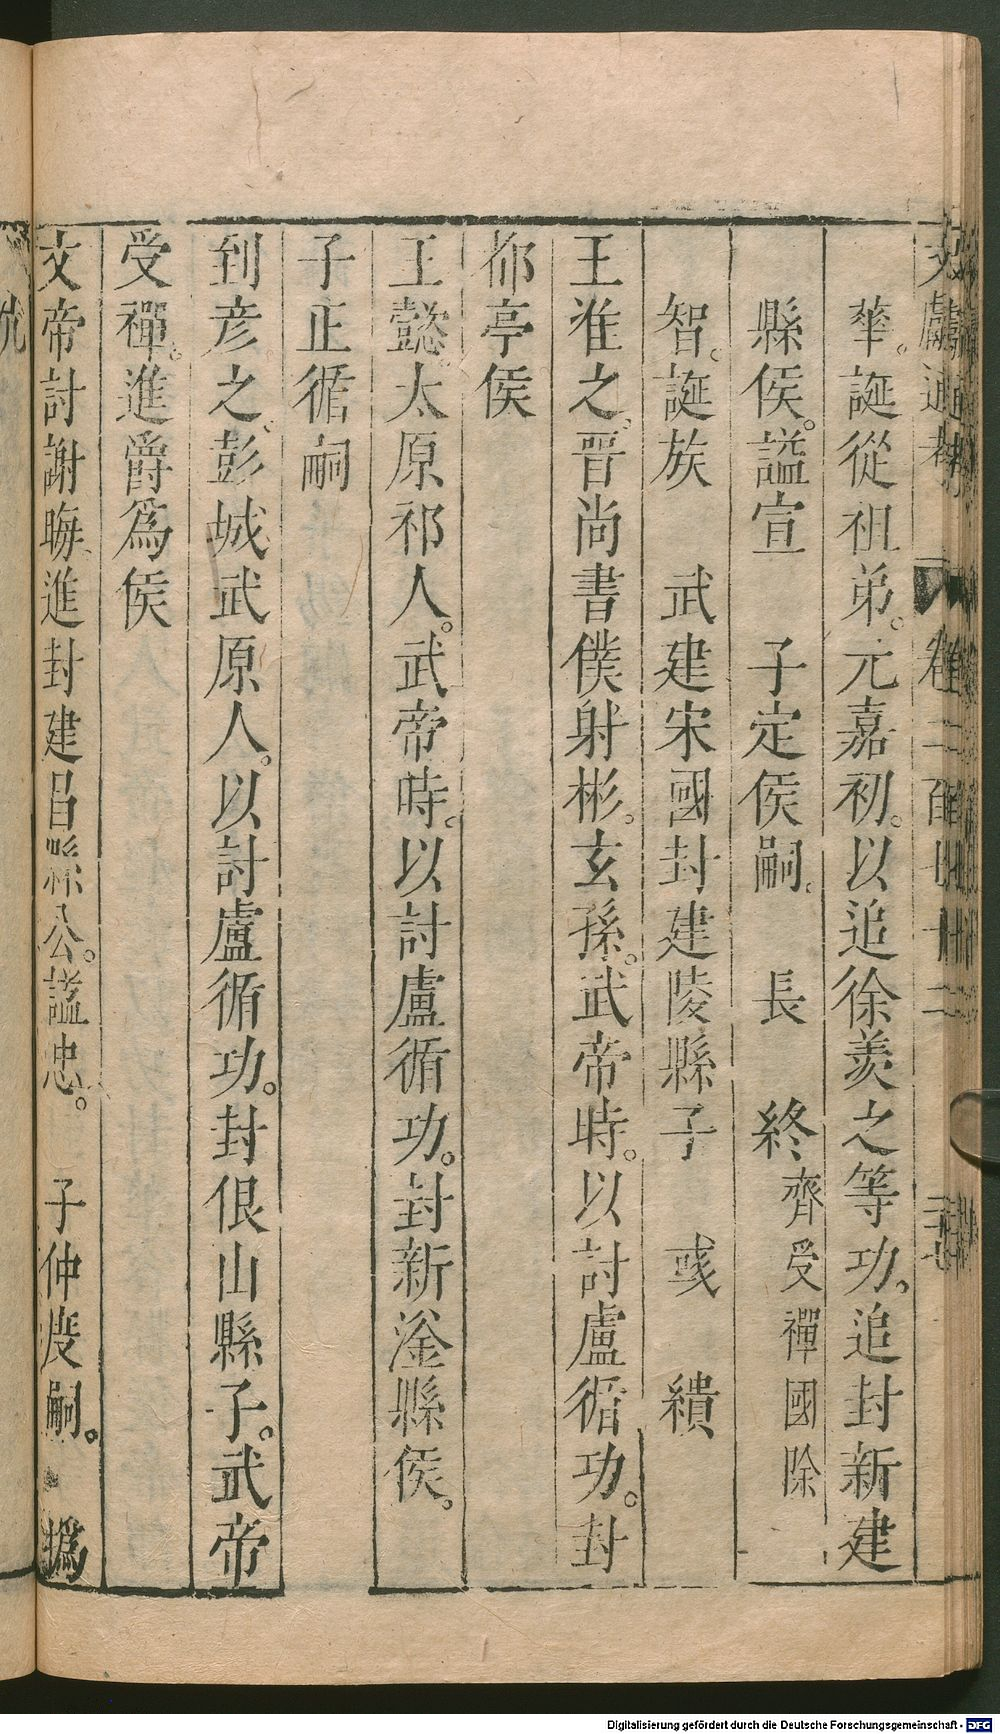 文獻通考 卷二百七十二
華。誕從祖弟。元嘉初。以追徐羨之等功。追封新建
縣侯。謚宣 子定侯嗣。 長 終齊受禪國除
智。誕族 武建宋國封建陵縣子 彧 繢
王准之。晉尚書僕射彬。玄孫。武帝時。以討盧循功。封
都亭侯
王懿。太原祁人。武帝時。以討盧循功。封新淦縣侯。
子正循嗣
到彥之。彭城武原人。以討盧循功。封佷山縣子。武帝
受禪。進爵為侯
文帝討謝晦進封建昌縣公。謚忠。 子仲度嗣。 撝
Digitalisierung gefördert durch die Deutsche Forschungsgemeinschaft - DFG